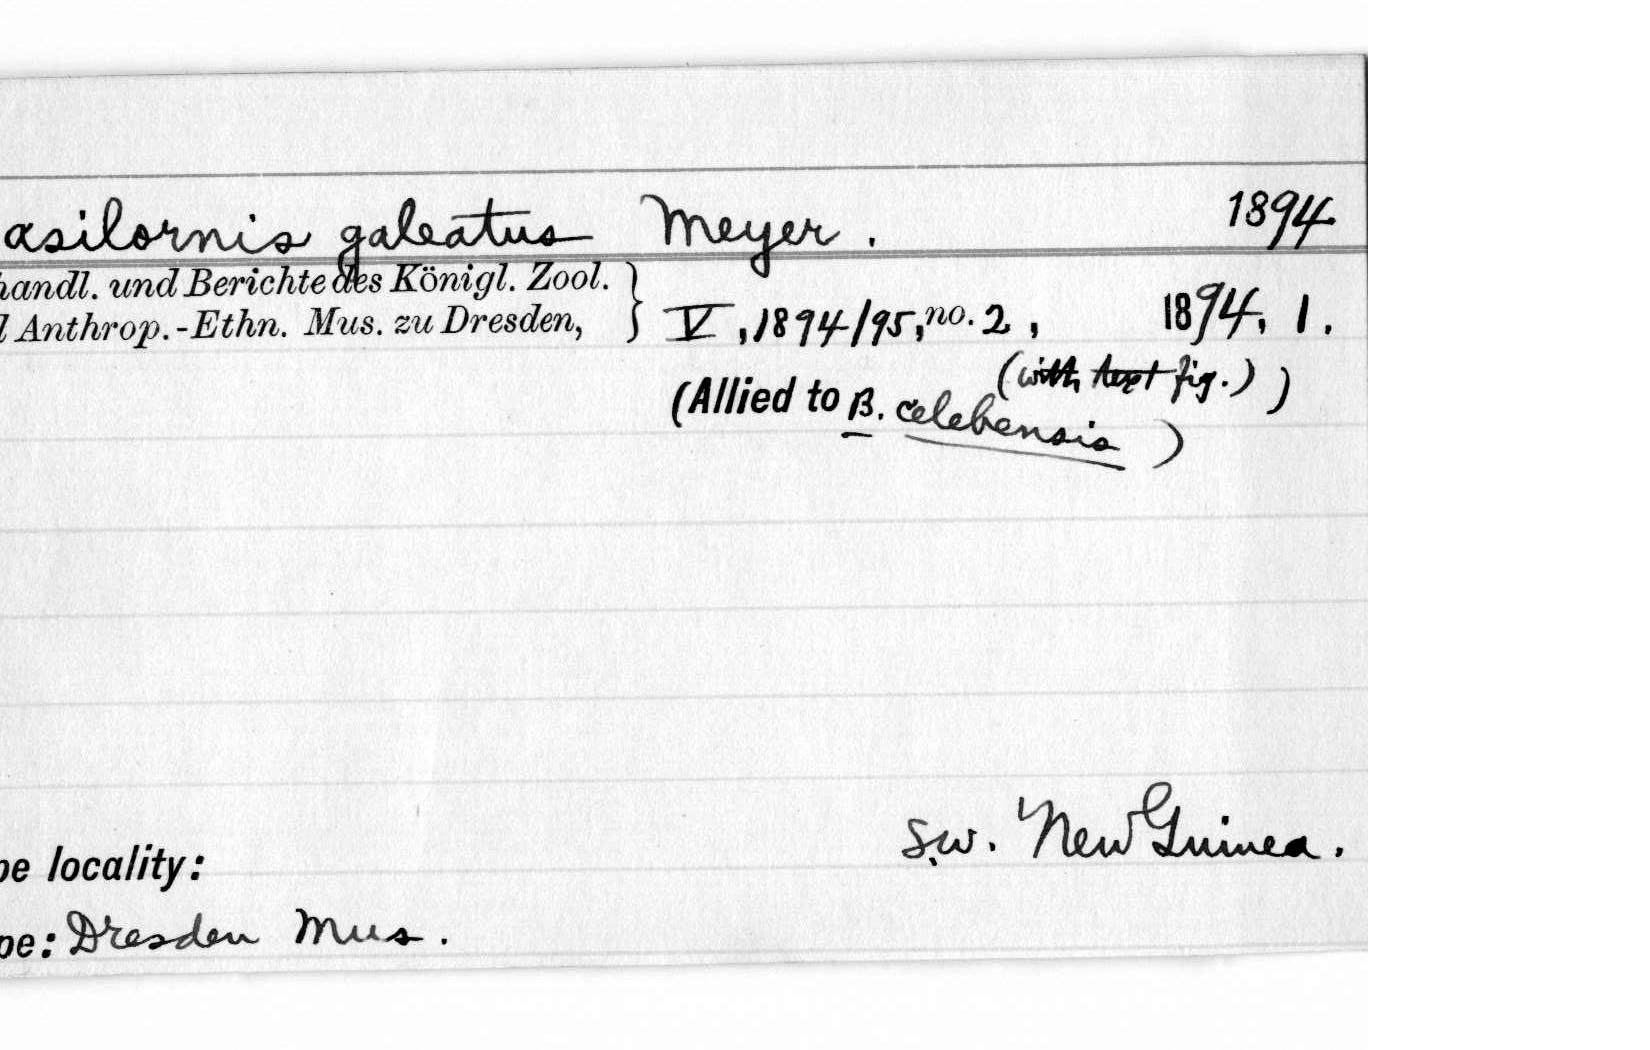 asilornis galeatus Meyer. 1894
handl. und Berichte des Königl. Zool.
l Anthrop.-Ethn. Mus. zu Dresden, } V, 1894/95, no. 2, 1894, 1.
(with text fig.) )
(Allied to B. celebensis )
S.W. New Guinea.
pe locality:
pe: Dresden Mus.